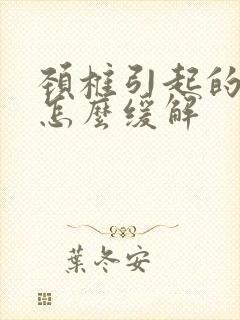 頸椎引起的
怎麼緩解
葉冬安